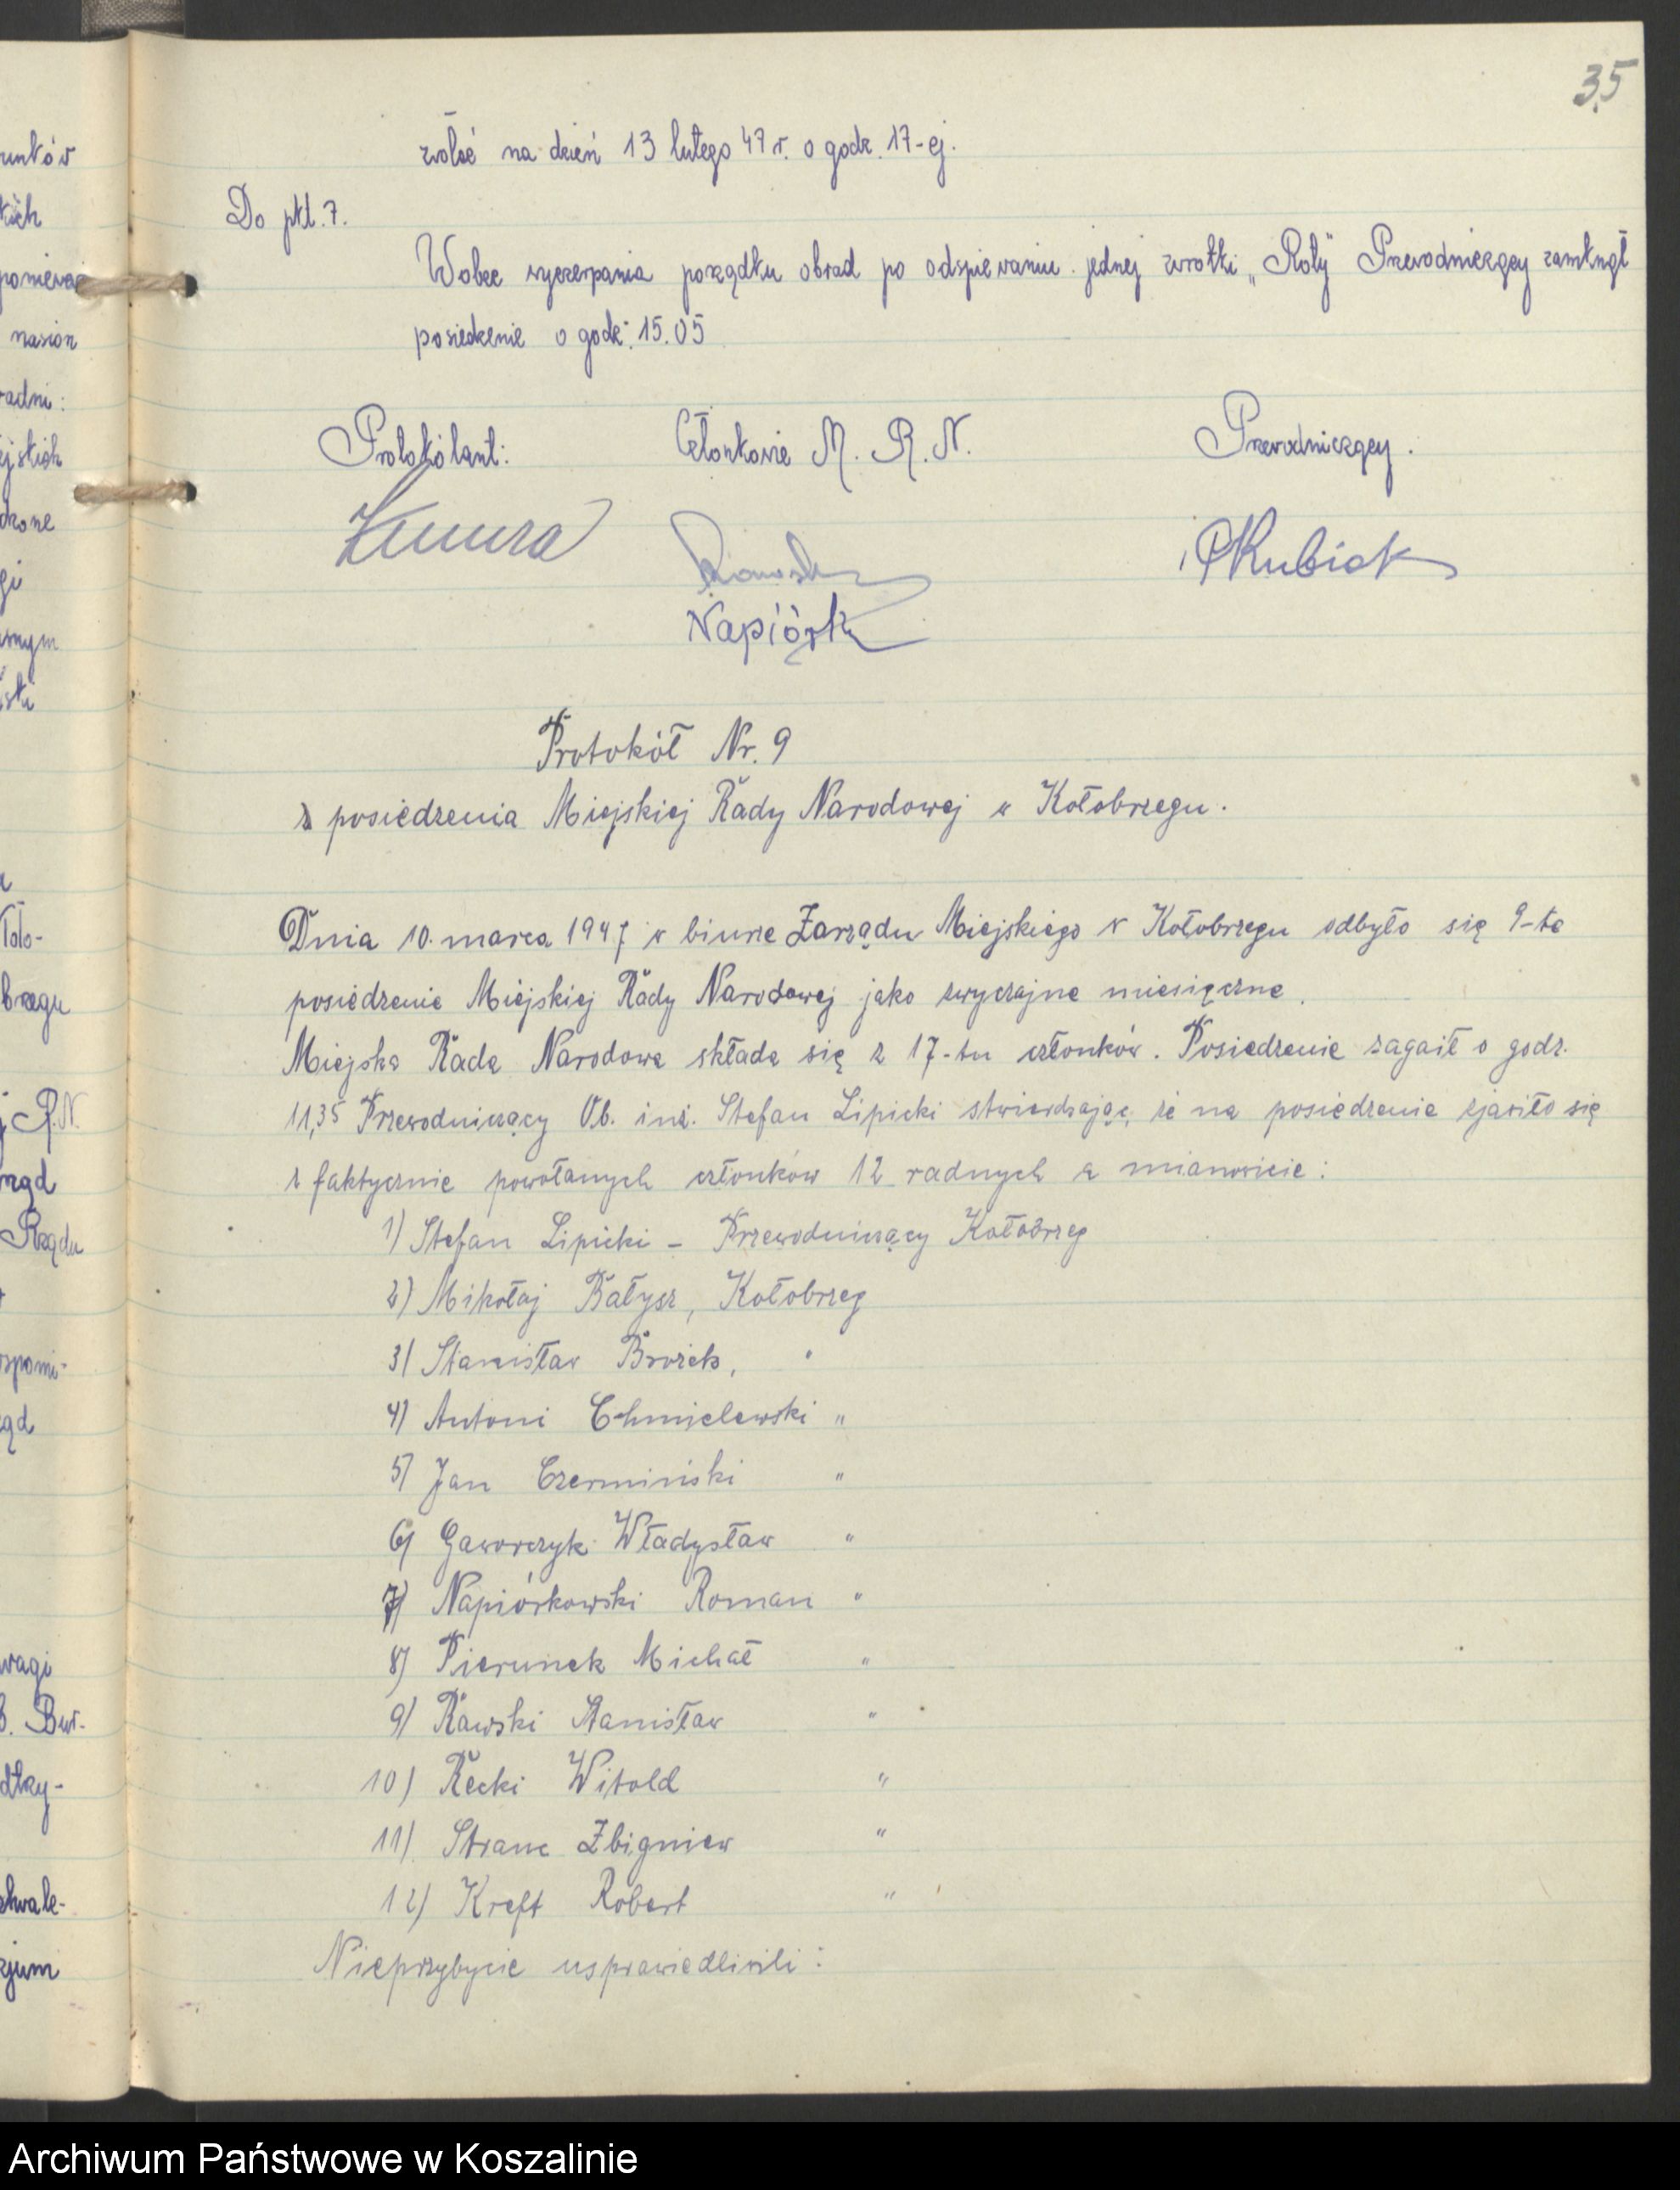 35
zwołać na dzień 13 lutego 47 r. o godz. 17-ej.
Do pkt. 7.
Wobec wyczerpania porządku obrad po odśpiewaniu jednej zwrotki „Roty" Przewodniczący zamknął
posiedzenie o godz. 15.05
Protokólant: Członkowie M. R. N. Przewodniczący.
Kubiak
Napiórk
Protokół Nr. 9
z posiedzenia Miejskiej Rady Narodowej w Kołobrzegu.
Dnia 10. marca 1947 w biurze Zarządu Miejskiego w Kołobrzegu odbyło się 9-te
posiedzenie Miejskiej Rady Narodowej jako zwyczajne miesięczne.
Miejska Rada Narodowa składa się z 17-tu członków. Posiedzenie zagaił o godz.
11,35 Przewodniczący Ob. inż. Stefan Lipicki stwierdzając, że na posiedzenie zjawiło się
z faktycznie powołanych członków 12 radnych a mianowicie:
1) Stefan Lipicki - Przewodniczący Kołobrzeg
2) Mikołaj Bałysz, Kołobrzeg
3) Stanisław Brożek, "
4) Antoni Chmielewski "
5) Jan Czermiński "
6) Gaworczyk Władysław "
7) Napiórkowski Roman "
8) Pierunek Michał "
9) Rawski Stanisław "
10) Recki Witold "
11) Stranc Zbigniew "
12) Kreft Robert "
Nieprzybycie usprawiedliwili:
Archiwum Państwowe w Koszalinie